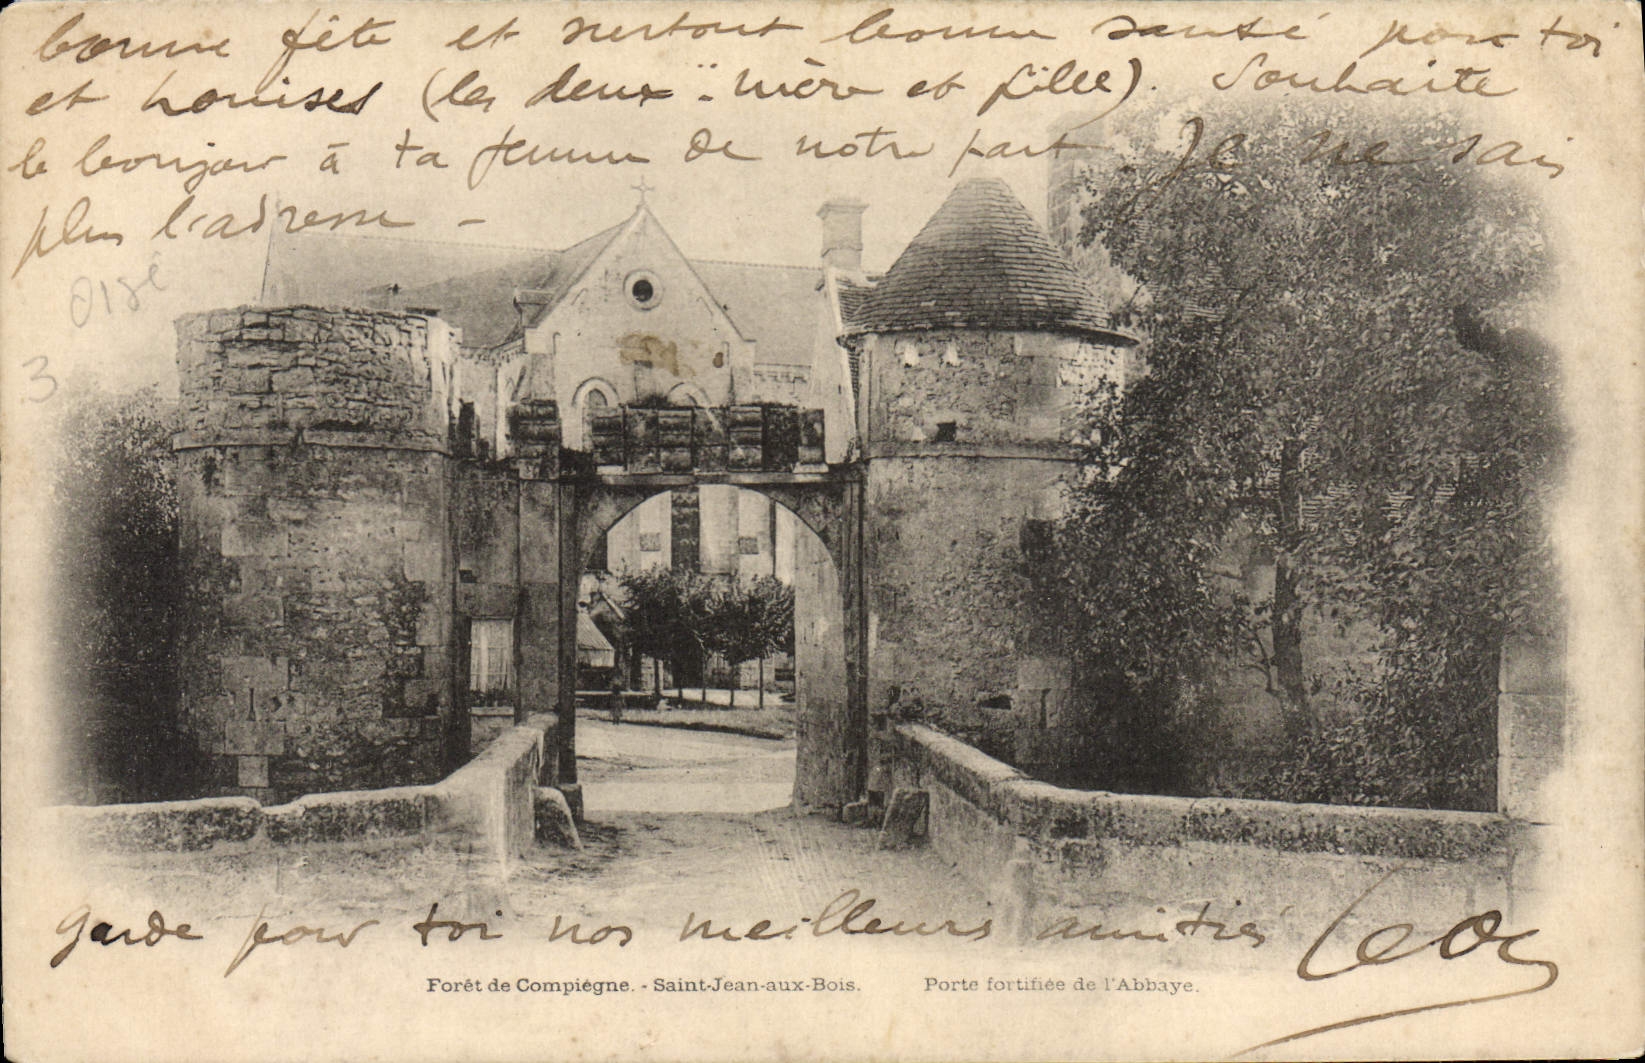 bonne fête et surtout bonne santé pour toi
et Louises (les deux - mère et fille). Souhaite
le bonjour à ta femme de notre part. Je ne sais
plus l'adresse -
Oise
3
garde pour toi nos meilleurs amitiés Leon
Forêt de Compiègne. - Saint-Jean-aux-Bois. Porte fortifiée de l'Abbaye.